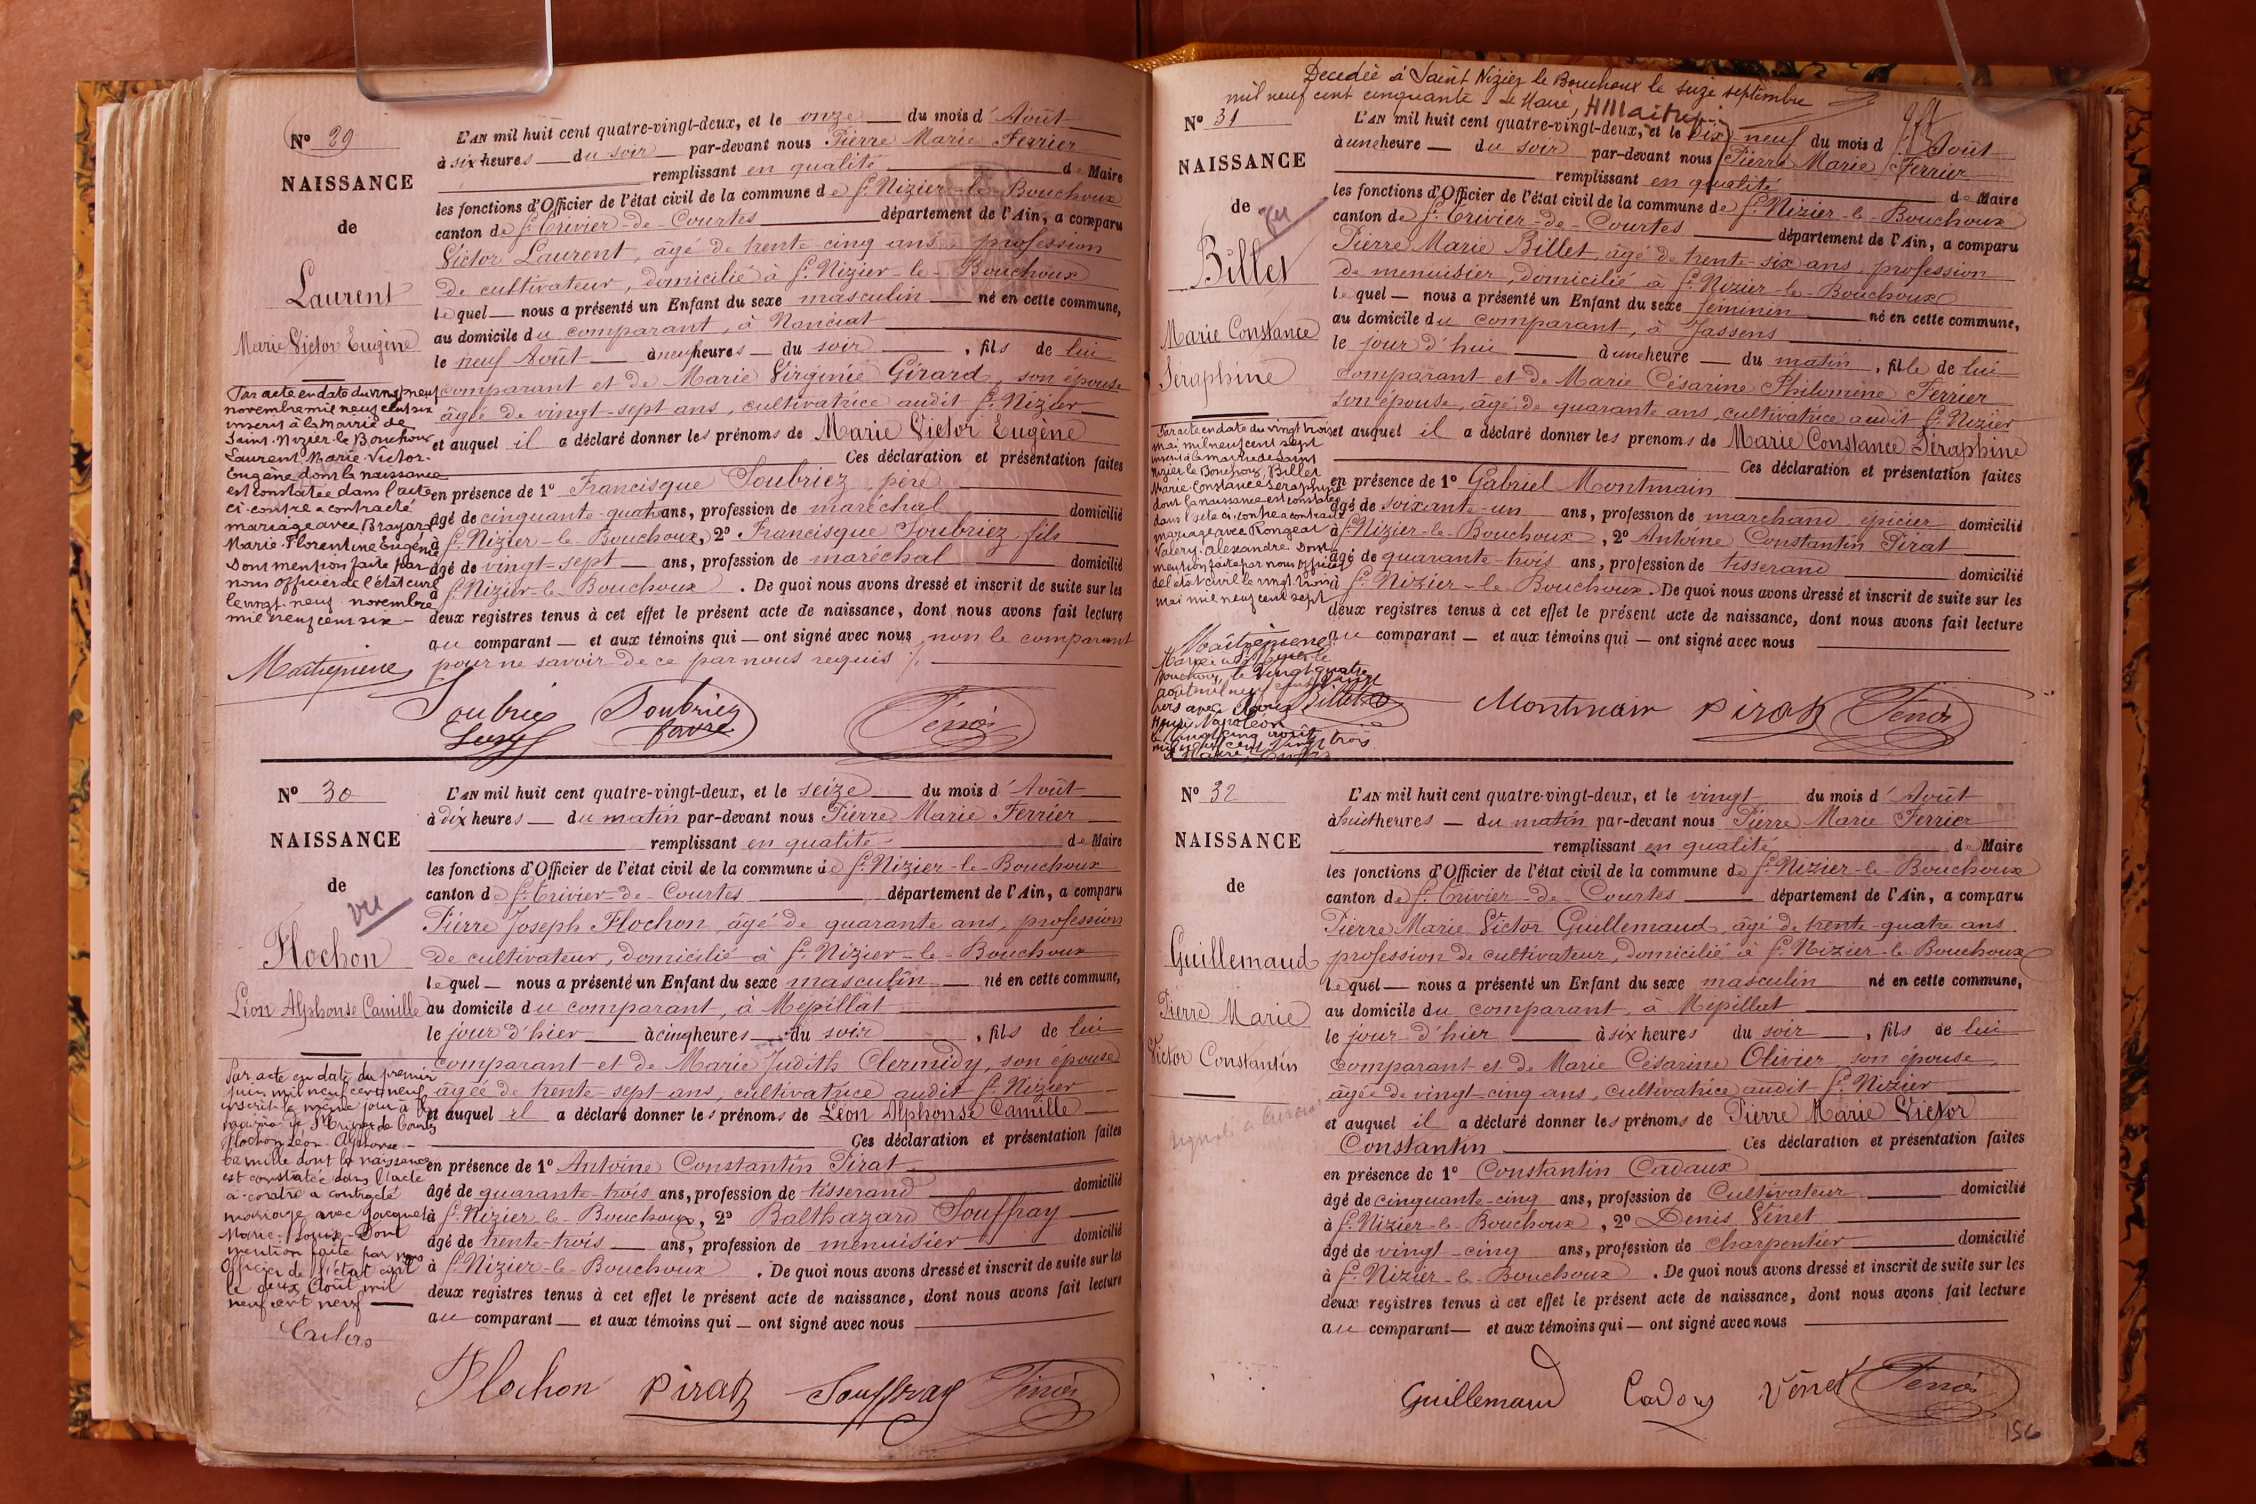 Nº 29
NAISSANCE
de
Laurent
Marie Victor Eugène
Par acte en date du vingt neuf
novembre mil neuf cent six
inscrit à la mairie de
Saint-Nizier-le-Bouchoux
Laurent Marie Victor
Eugène dont la naissance
est constatée dans l'acte
ci-contre a contracté
mariage avec Brayard
Marie Florentine Eugénie
Dont mention faite par
nous officier de l'état civil
le vingt-neuf novembre
mil neuf cent six
L'AN mil huit cent quatre-vingt-deux, et le onze du mois d'Août
à six heures du soir par-devant nous Pierre Marie Ferrier
remplissant en qualité de Maire
les fonctions d'Officier de l'état civil de la commune de St Nizier-le-Bouchoux
canton de St Trivier-de-Courtes département de l'Ain, a comparu
Victor Laurent, âgé de trente-cinq ans, profession
de cultivateur, domicilié à St Nizier-le-Bouchoux
lequel nous a présenté un Enfant du sexe masculin né en cette commune,
au domicile du comparant, à Nanciat
le neuf Août à neuf heures du soir, fils de lui
comparant et de Marie Virginie Girard, son épouse
âgée de vingt-sept ans, cultivatrice audit St Nizier
et auquel il a déclaré donner les prénoms de Marie Victor Eugène
Ces déclaration et présentation faites
en présence de 1º Francisque Soubriez, père
âgé de cinquante-quatre ans, profession de maréchal domicilié
à St Nizier-le-Bouchoux, 2º Francisque Soubriez fils
âgé de vingt-sept ans, profession de maréchal domicilié
à St Nizier-le-Bouchoux. De quoi nous avons dressé et inscrit de suite sur les
deux registres tenus à cet effet le présent acte de naissance, dont nous avons fait lecture
au comparant et aux témoins qui ont signé avec nous, non le comparant
pour ne savoir de ce par nous requis
Soubriez Soubriez
favre
Nº 30
NAISSANCE
de
vu
Flochon
Léon Alphonse Camille
Par acte en date du premier
juin mil neuf cent neuf
inscrit le même jour à la
mairie de St Trivier de Courtes
Flochon Léon Alphonse
Camille dont la naissance
est constatée dans l'acte
ci-contre a contracté
mariage avec Jacquet
Marie-Louise. Dont
mention faite par nous
Officier de l'état civil
le deux Août mil
neuf cent neuf
L'AN mil huit cent quatre-vingt-deux, et le seize du mois d'Août
à dix heures du matin par-devant nous Pierre Marie Ferrier
remplissant en qualité de Maire
les fonctions d'Officier de l'état civil de la commune de St Nizier-le-Bouchoux
canton de St Trivier-de-Courtes département de l'Ain, a comparu
Pierre Joseph Flochon, âgé de quarante ans, profession
de cultivateur, domicilié à St Nizier-le-Bouchoux
lequel nous a présenté un Enfant du sexe masculin né en cette commune,
au domicile du comparant, à Mépillat
le jour d'hier à cinq heures du soir, fils de lui
comparant et de Marie Judith Clermidy, son épouse
âgée de trente-sept ans, cultivatrice audit St Nizier
et auquel il a déclaré donner les prénoms de Léon Alphonse Camille
Ces déclaration et présentation faites
en présence de 1º Antoine Constantin Pirat
âgé de quarante-trois ans, profession de tisserand domicilié
à St Nizier-le-Bouchoux, 2º Balthazard Souffray
âgé de trente-trois ans, profession de menuisier domicilié
à St Nizier-le-Bouchoux. De quoi nous avons dressé et inscrit de suite sur les
deux registres tenus à cet effet le présent acte de naissance, dont nous avons fait lecture
au comparant et aux témoins qui ont signé avec nous
Flochon Pirat Souffray
Décédée à Saint Nizier le Bouchoux le seize septembre
mil neuf cent cinquante. Le Maire,
Nº 31
NAISSANCE
de
vu
Billet
Marie Constance
Séraphine
Par acte en date du vingt trois
mai mil neuf cent sept
inscrit à la mairie de Saint
Nizier le Bouchoux, Billet
Marie Constance Séraphine
dont la naissance est constatée
dans l'acte ci-contre a contracté
mariage avec Rongeat
Valéry Alexandre. Dont
mention faite par nous officier
de l'état civil le vingt trois
mai mil neuf cent sept
L'AN mil huit cent quatre-vingt-deux, et le dix-neuf du mois d'Août
à une heure du soir par-devant nous Pierre Marie Ferrier
remplissant en qualité de Maire
les fonctions d'Officier de l'état civil de la commune de St Nizier-le-Bouchoux
canton de St Trivier-de-Courtes département de l'Ain, a comparu
Pierre Marie Billet, âgé de trente-six ans, profession
de menuisier, domicilié à St Nizier-le-Bouchoux
lequel nous a présenté un Enfant du sexe féminin né en cette commune,
au domicile du comparant, à Jassens
le jour d'hui à une heure du matin, fille de lui
comparant et de Marie Césarine Philomène Ferrier
son épouse, âgé de quarante ans, cultivatrice audit St Nizier
et auquel il a déclaré donner les prenoms de Marie Constance Séraphine
Ces déclaration et présentation faites
en présence de 1º Gabriel Montmain
âgé de soixante-un ans, profession de marchand épicier domicilié
à St Nizier-le-Bouchoux, 2º Antoine Constantin Pirat
âgé de quarante-trois ans, profession de tisserand domicilié
à St Nizier-le-Bouchoux. De quoi nous avons dressé et inscrit de suite sur les
deux registres tenus à cet effet le présent acte de naissance, dont nous avons fait lecture
au comparant et aux témoins qui ont signé avec nous
Billet Montmain Pirat
Nº 32
NAISSANCE
de
Guillemaud
Pierre Marie
Victor Constantin
L'AN mil huit cent quatre-vingt-deux, et le vingt du mois d'Août
à huit heures du matin par-devant nous Pierre Marie Ferrier
remplissant en qualité de Maire
les fonctions d'Officier de l'état civil de la commune de St Nizier-le-Bouchoux
canton de St Trivier-de-Courtes département de l'Ain, a comparu
Pierre Marie Victor Guillemaud, âgé de trente-quatre ans
profession de cultivateur, domicilié à St Nizier-le-Bouchoux
lequel nous a présenté un Enfant du sexe masculin né en cette commune,
au domicile du comparant, à Mépillat
le jour d'hier à six heures du soir, fils de lui
comparant et de Marie Césarine Olivier, son épouse,
âgée de vingt-cinq ans, cultivatrice audit St Nizier
et auquel il a déclaré donner les prénoms de Pierre Marie Victor
Constantin Ces déclaration et présentation faites
en présence de 1º Constantin Cadaux
âgé de cinquante-cinq ans, profession de Cultivateur domicilié
à St Nizier-le-Bouchoux, 2º Denis Vénet
âgé de vingt-cinq ans, profession de charpentier domicilié
à St Nizier-le-Bouchoux. De quoi nous avons dressé et inscrit de suite sur les
deux registres tenus à cet effet le présent acte de naissance, dont nous avons fait lecture
au comparant et aux témoins qui ont signé avec nous
Guillemaud Vénet
156